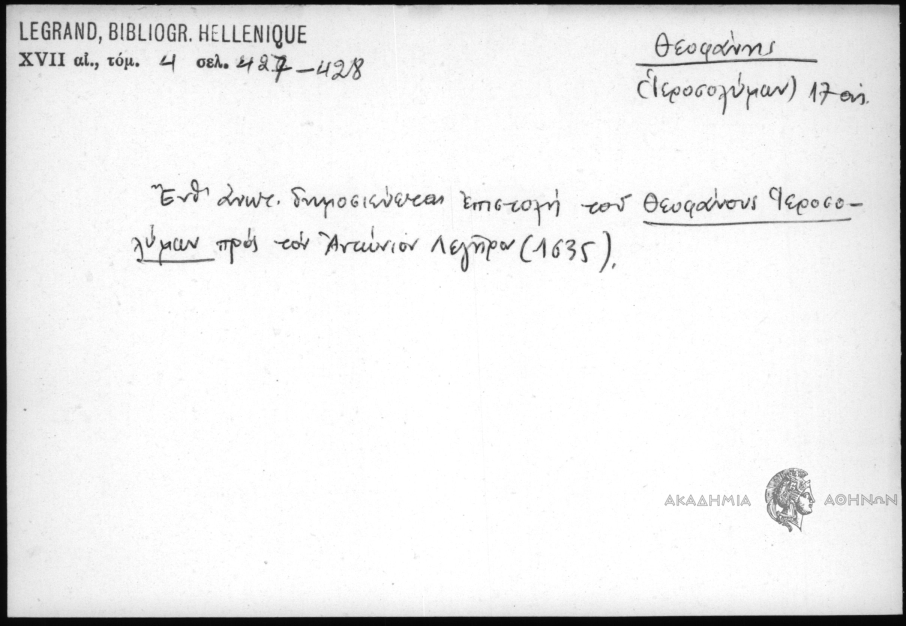 LEGRAND, BIBLIOGR. HELLENIQUE
XVII αἰ., τόμ. 4 σελ. 427-428
Θεοφάνης
(Ἱεροσολύμων) 17 αἰ.
Ἔνθ' ἀνωτ. δημοσιεύεται ἐπιστολή τοῦ Θεοφάνους Ἱεροσο-
λύμων πρός τόν Ἀντώνιον Λεγῆρον (1635).
ΑΚΑΔΗΜΙΑ ΑΘΗΝΩΝ